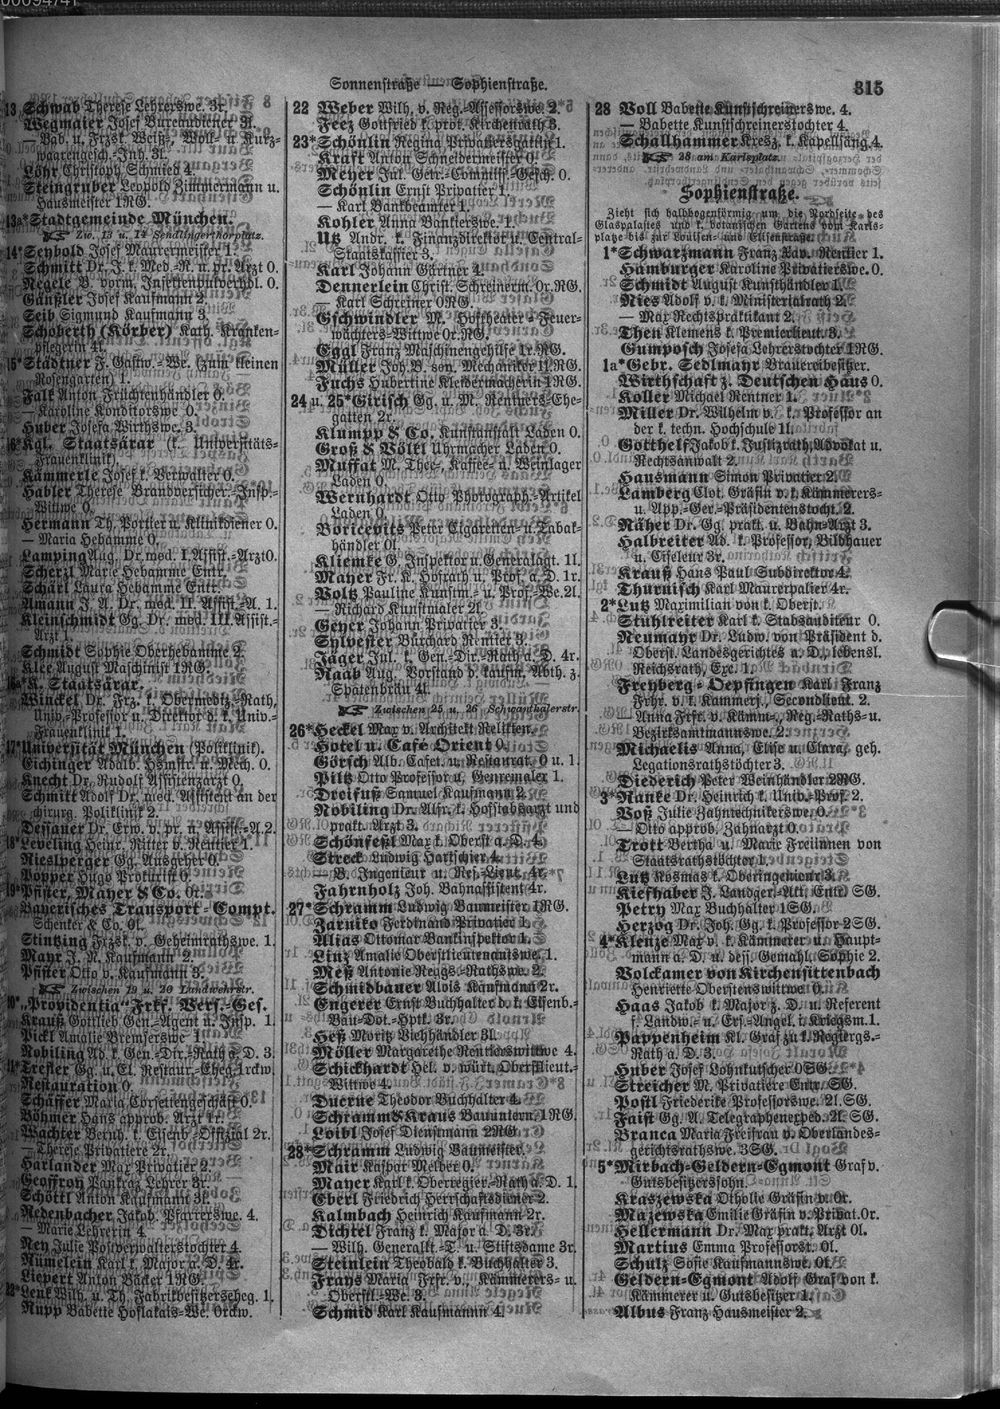 Sonnenstraße — Sophienstraße.
315
13 Schwab Therese Lehrerswe. 3r.
Wegmaier Josef Bureaudiener 3l.
— Bab. u. Frzsk. Weiß-, Woll- u. Kurz-
waarengesch.-Inh. 3l.
Löhr Christoph Schmied 4.
Steingruber Leopold Zimmermann u.
Hausmeister 1RG.
13a*Stadtgemeinde München.
Zw. 13 u. 14 Sendlingerthorplatz.
14*Seybold Josef Maurermeister 1.
Schmitt Dr. J. k. Med.-R. u. pr. Arzt 0.
Regele B. vorm. Insektenpulverhdl. 0.
Gänßler Josef Kaufmann 2.
Seib Sigmund Kaufmann 3.
Schoberth (Körber) Kath. Kranken-
pflegerin 4l.
15*Städtner F. Gastw.-We. (zum kleinen
Rosengarten) 1.
Falk Anton Früchtenhändler 0.
— Karoline Konditorswe 0.
Huber Josefa Wirthswe. 3.
16*Kgl. Staatsärar (k. Universitäts-
Frauenklinik)
Kämmerle Josef k. Verwalter 0.
Habler Therese Brandversicher.-Insp.-
Wittwe 0.
Hermann Th. Portier u. Klinikdiener 0.
— Maria Hebamme 0.
Lamping Aug. Dr. med. I. Assist.-Arzt 0.
Scherzl Marie Hebamme Entr.
Schärl Laura Hebamme Entr.
Amann J. A. Dr. med. II. Assist.-A. 1.
Kleinschmidt Gg. Dr. med. III. Assist.-
Arzt 1.
Schmidt Sophie Oberhebamme 2.
Klee August Maschinist 1RG.
K. Staatsärar.
Winckel Dr. Frz. k. Obermediz.-Rath,
Univ.-Professor u. Direktor d. k. Univ.-
Frauenklinik 1.
17*Universität München (Poliklinik).
Eichinger Adalb. Hsmstr. u. Mech. 0.
Knecht Dr. Rudolf Assistenzarzt 0.
Schmitt Adolf Dr. med. Assistent an der
chirurg. Poliklinik 2.
Dessauer Dr. Erw. v. pr. u. Assist.-A. 2.
18*Leveling Heinr. Ritter v. Rentier 1.
Rieslperger Gg. Ausgeher 0.
Popper Hugo Prokurist 0.
19*Pfister, Mayer & Co. 0r.
Bayerisches Transport-Compt.
Schenker & Co. 0l.
Stintzing Frzsk. v. Geheimrathswe. 1.
Mayr J. N. Kaufmann 2.
Pfister Otto v. Kaufmann 3.
Zwischen 19 u. 20 Landwehrstr.
20*„Providentia“ Frkf. Vers.-Ges.
Krauß Gottlieb Gen.-Agent u. Insp. 1.
Pickl Amalie Bremserswe 1.
Nobiling Ad. k. Gen.-Dir.-Rath a. D. 3.
21*Trefler Gg. u. El. Restaur.-Eheg. 1rckw.
Restauration 0.
Schäffer Maria Corsettengeschäft 0.
Böhmer Hans approb. Arzt 1r.
Wachter Bernh. k. Eisenb.-Offizial 2r.
— Therese Privatiere 2r.
Harlander Max Privatier 2.
Geoffroy Pankraz Lehrer 3r.
Schöttl Anton Kaufmann 3l.
Redenbacher Jakob. Pfarrerswe. 4.
— Marie Lehrerin 4.
Ney Julie Postverwalterstochter 4.
Nümelein Karl k. Major a. D. 4r.
Liepert Anton Bäcker 1RG.
22*Lenk Wilh. u. Th. Fabrikbesitzerseheg. 1.
Rupp Babette Hoflakais-We. 0rckw.
22 Weber Wilh. v. Reg.-Assessorswe. 2.
Feez Gottfried k. prot. Kirchenrath 3.
23*Schönlin Regina Privatiersgattin 1.
Kraft Anton Schneidermeister 0.
Meyer Jul. Gen.-Commiss.-Gesch. 0.
Schönlin Ernst Privatier 1.
— Karl Bankbeamter 1.
Kohler Anna Bankierswe. 1.
Utz Andr. k. Finanzdirektor u. Central-
Staatskassier 3.
Karl Johann Gärtner 4.
Dennerlein Christ. Schreinerm. 0r.RG.
— Karl Schreiner 0RG.
Gschwindler M. Hoftheater-Feuer-
wächters-Wittwe 0r.RG.
Eggl Franz Maschinengehilfe 1r.RG.
Müller Joh. B. son. Mechaniker 1l.RG.
Fuchs Hubertine Kleidermacherin 1RG.
24 u. 25*Girisch Gg. u. M. Rentiers-Ehe-
gatten 2r.
Klumpp & Co. Kunstanstalt Laden 0.
Groß & Völkl Uhrmacher Laden 0.
Muffat M. Thee-, Kaffee- u. Weinlager
Laden 0.
Wernhardt Otto Photograph.-Artikel
Laden 0.
Boricevits Peter Cigaretten- u. Tabak-
händler 0l.
Kliemke G. Inspektor u. Generalagt. 1l.
Mayer Fr. K. Hofrath u. Prof. a. D. 1r.
Voltz Pauline Kunstm.- u. Prof.-We. 2l.
— Richard Kunstmaler 2l.
Geyer Johann Privatier 3.
Sylvester Burchard Rentier 3.
Jäger Jul. k. Gen.-Dir.-Rath a. D. 4r.
Raab Aug. Vorstand d. kaufm. Abth. z.
Spatenbräu 4l.
Zwischen 25 u. 26 Schwanthalerstr.
26*Heckel Max v. Architekt Relikten.
Hotel u. Café Orient 0.
Görsch Alb. Cafet. u. Restaurat. 0 u. 1.
Piltz Otto Professor u. Genremaler 1.
Dreifuß Samuel Kaufmann 2.
Nobiling Dr. Alfr. k. Hofstabsarzt und
prakt. Arzt 3.
Schönfeßl Max k. Oberst a. D. 4.
Streck Ludwig Hartschier 4.
— B. Ingenieur u. Res.-Lieut. 4r.
Fahrnholz Joh. Bahnassistent 4r.
27*Schramm Ludwig Baumeister 1RG.
Jarniko Ferdinand Privatier 1.
Alias Ottomar Bankinspektor 1.
Linz Amalie Oberstlieutenantswe. 1.
Meß Antonie Reggs.-Rathswe. 2.
Schmidbauer Alois Kaufmann 2r.
Engerer Ernst Buchhalter d. k. Eisenb.-
Bau-Dot.-Hptk. 3r.
Heß Moritz Viehhändler 3l.
Möller Margarethe Rentierswittwe 4.
Schickhardt Hel. v. württ. Oberstlieut.-
Wittwe 4.
Duerne Theodor Buchhalter 4.
Schramm & Kraus Bauuntern. 1RG.
Loibl Josef Dienstmann 2RG.
28*Schramm Ludwig Baumeister.
Mair Kaspar Melber 0.
Mayer Karl k. Oberregier.-Rath a. D. 1.
Eberl Friedrich Herrschaftsdiener 2.
Kalmbach Heinrich Kaufmann 2r.
Dichtel Franz k. Major a. D. 3r.
— Wilh. Generallt.-T. u. Stiftsdame 3r.
Steinlein Theobald k. Buchhalter 3.
Frays Maria Frfr. v. Kämmerers- u.
Oberstl.-We. 3.
Schmid Karl Kaufmann 4.
28 Voll Babette Kunstschreinerswe. 4.
— Babette Kunstschreinerstochter 4.
Schallhammer Kresz. k. Kapellsäng. 4.
28 am Karlsplatz.
Sophienstraße.
Zieht sich halbbogenförmig um die Nordseite des
Glaspalastes und k. botanischen Gartens vom Karls-
platze bis zur Louisen- und Elisenstraße.
1*Schwarzmann Franz Xav. Rentier 1.
Hamburger Karoline Privatierswe. 0.
Schmidt August Kunsthändler 1.
Ries Adolf v. k. Ministerialrath 2.
— Max Rechtspraktikant 2.
Then Klemens k. Premierlieut. 3.
Gumposch Josefa Lehrerstochter 1RG.
1a*Gebr. Sedlmayr Brauereibesitzer.
Wirthschaft z. Deutschen Haus 0.
Koller Michael Rentner 1.
Miller Dr. Wilhelm v. k. Professor an
der k. techn. Hochschule 1l.
Gotthelf Jakob k. Justizrath, Advokat u.
Rechtsanwalt 2.
Hausmann Simon Privatier 2.
Lamberg Clot. Gräfin v. k. Kämmerers-
u. App.-Ger.-Präsidentenstocht. 2.
Näher Dr. Gg. prakt. u. Bahn-Arzt 3.
Halbreiter Ad. k. Professor, Bildhauer
u. Ciseleur 3r.
Krauß Hans Paul Subdirektor 4.
Thurnisch Karl Maurerpalier 4r.
2*Lutz Maximilian von k. Oberst.
Stuhlreiter Karl k. Stabsauditeur 0.
Neumayr Dr. Ludw. von Präsident d.
Oberst. Landesgerichtes a. D., lebensl.
Reichsrath, Exc. 1.
Freyberg-Oepfingen Karl Franz
Frhr. v. k. Kammerj., Secondlieut. 2.
— Anna Frfr. v. Kämm.-, Reg.-Raths- u.
Bezirksamtmannswe. 2.
Michaelis Anna, Elise u. Clara, geh.
Legationsrathstöchter 3.
Diederich Peter Weinhändler 2RG.
3*Ranke Dr. Heinrich k. Univ.-Prof. 2.
Voß Julie Zahntechnikerswe. 0.
— Otto approb. Zahnarzt 0.
Trott Bertha u. Marie Freiinnen von
Staatsrathstöchter 1.
Lutz Kosmas k. Oberingenieur 3.
Kieshaber J. Landger.-Akt. Entr. SG.
Petry Max Buchhalter 1SG.
Herzog Dr. Joh. Gg. k. Professor 2SG.
4*Klenze Max v. k. Kämmerer u. Haupt-
mann a. D. u. dess. Gemahl. Sophie 2.
Volckamer von Kirchensittenbach
Henriette Oberstenswittwe 0.
Haas Jakob k. Major z. D. u. Referent
f. Landw.- u. Ers.-Angel. i. Kriegsm. 1.
Pappenheim Kl. Graf zu k. Regiergs.-
Rath a. D. 3.
Huber Josef Lohnkutscher 0SG.
Streicher M. Privatiere Entr. SG.
Postl Friederike Professorswe. 2l. SG.
Faist Gg. A. Telegraphenexped. 2l. SG.
Branca Maria Freifrau v. Oberlandes-
gerichtsrathswe. 3SG.
5*Mirbach-Geldern-Egmont Graf v.
Gutsbesitzerssohn.
Kraszewska Otholle Gräfin v. 0r.
Mazewska Emilie Gräfin v. Privat. 0r.
Hellermann Dr. Max prakt. Arzt 0l.
Martius Emma Professorst. 0l.
Schulz Sofie Kaufmannswe. 0l.
Geldern-Egmont Adolf Graf von k.
Kämmerer u. Gutsbesitzer 1.
Albus Franz Hausmeister 2.